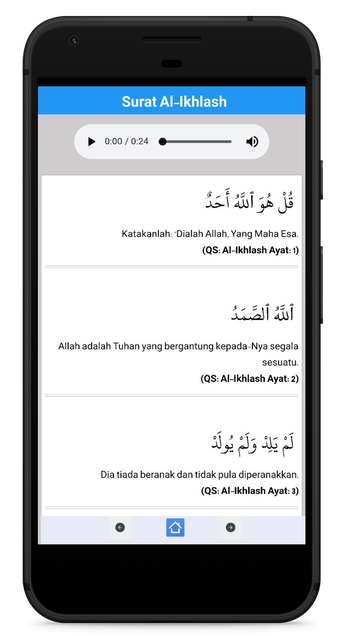 Surat Al-Ikhlash
0:00 / 0:24
قُلْ هُوَ ٱللَّهُ أَحَدٌ
Katakanlah: "Dialah Allah, Yang Maha Esa.
(QS: Al-Ikhlash Ayat: 1)
ٱللَّهُ ٱلصَّمَدُ
Allah adalah Tuhan yang bergantung kepada-Nya segala
sesuatu.
(QS: Al-Ikhlash Ayat: 2)
لَمْ يَلِدْ وَلَمْ يُولَدْ
Dia tiada beranak dan tidak pula diperanakkan.
(QS: Al-Ikhlash Ayat: 3)